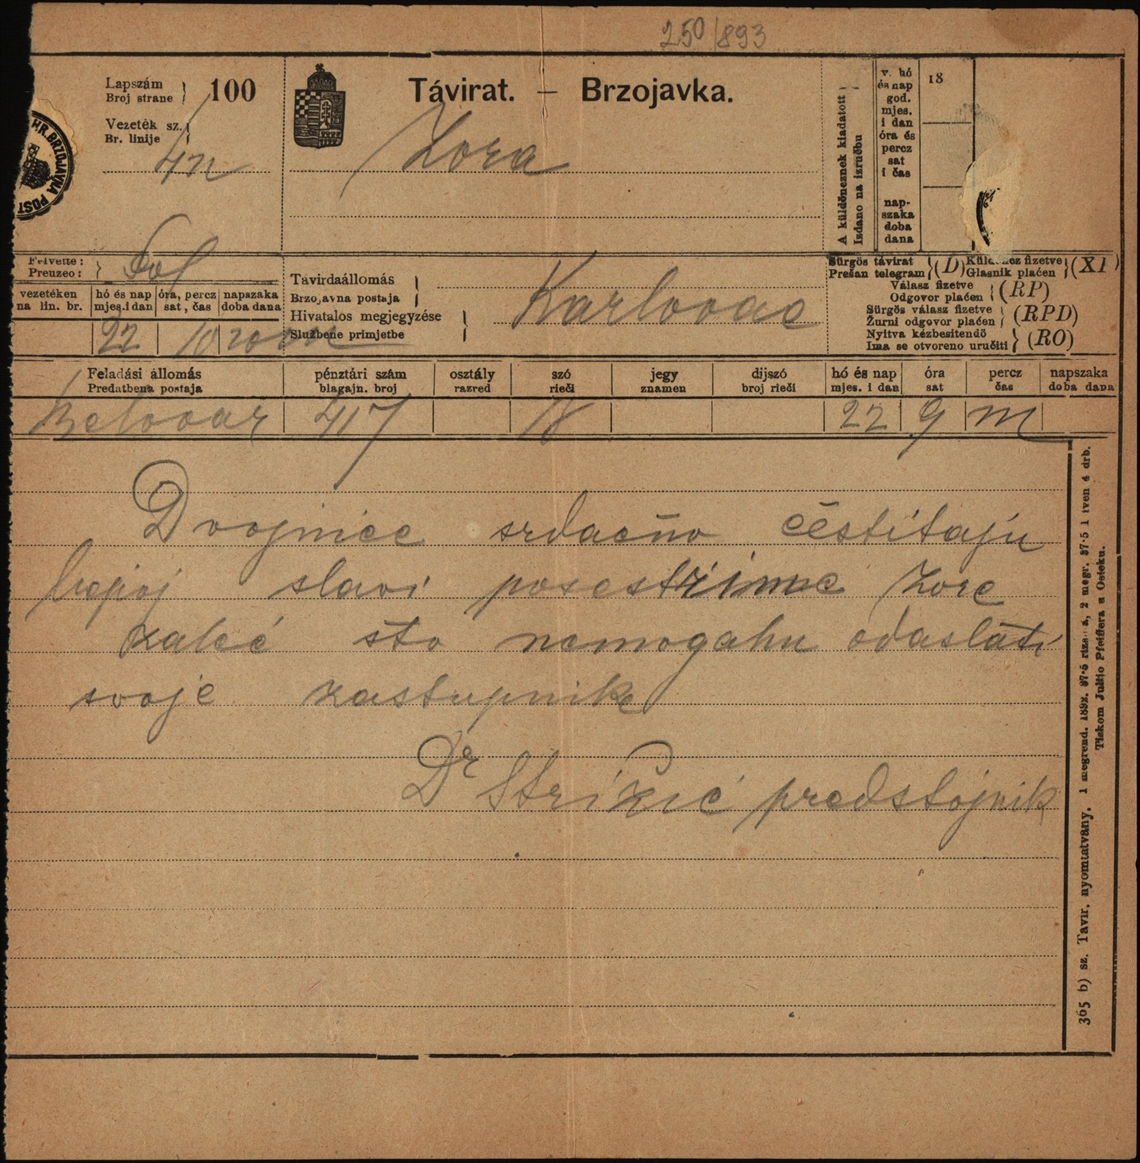 250/893
Lapszám
Broj strane
100
Vezeték sz.
Br. linije
4/n
Távirat. — Brzojavka.
Zora
A küldőneznek kiadatott
Izdano na izručbu
v. hó
és nap
god.
mjes.
i dan
óra és
percz
sat
i čas
nap-
szaka
doba
dana
18
HR. BRZOJAVNA POST
Felvette:
Preuzeo:
vezetéken
na lin. br.
hó és nap
mjes. i dan
óra, percz
sat, čas
napszaka
doba dana
22 10
Távirdaállomás
Brzojavna postaja
Hivatalos megjegyzése
Službene primjetbe
Karlovac
Sürgős távirat
Prešan telegram (D)
Küldöncz fizetve
Glasnik plaćen (XP)
Válasz fizetve
Odgovor plaćen (RP)
Sürgős válasz fizetve
Žurni odgovor plaćen (RPD)
Nyitva kézbesítendő
Ima se otvoreno uručiti (RO)
Feladási állomás
Predatbena postaja
pénztári szám
blagajn. broj
osztály
razred
szó
rieči
jegy
znamen
dijszó
broj rieči
hó és nap
mjes. i dan
óra
sat
percz
čas
napszaka
doba dana
Belovar 417 18 22 9 m
Dvojnice srdačno čestitaju
liepoj slavi posestrime Zore
žaleć što nemogahu odaslati
svoje zastupnike
Dr Strižić predstojnik
365 b) sz. Távir. nyomtatvány. 1 megrend. 1892. 37·5 rizs a, 2 megr. 37·5 1 iven 4 drb.
Tiskom Julijo Pfeiffera u Osieku.